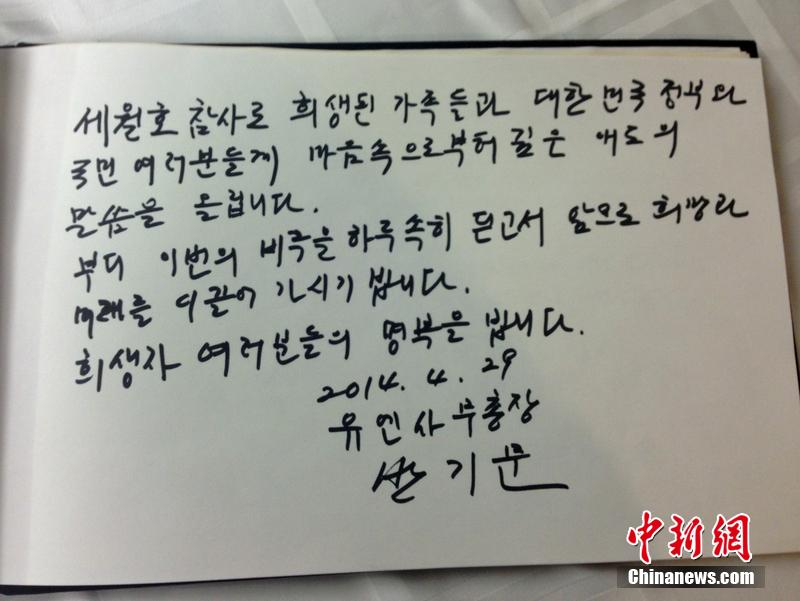 세월호 참사로 희생된 가족들과 대한민국 정부와
국민 여러분들께 마음속으로부터 깊은 애도의
말씀을 올립니다.
부디 이번의 비극을 하루속히 딛고서 앞으로 희망과
미래를 이끌어 가시기 빕니다.
희생자 여러분들의 명복을 빕니다.
2014. 4. 29
유엔사무총장
반기문
中新網
Chinanews.com